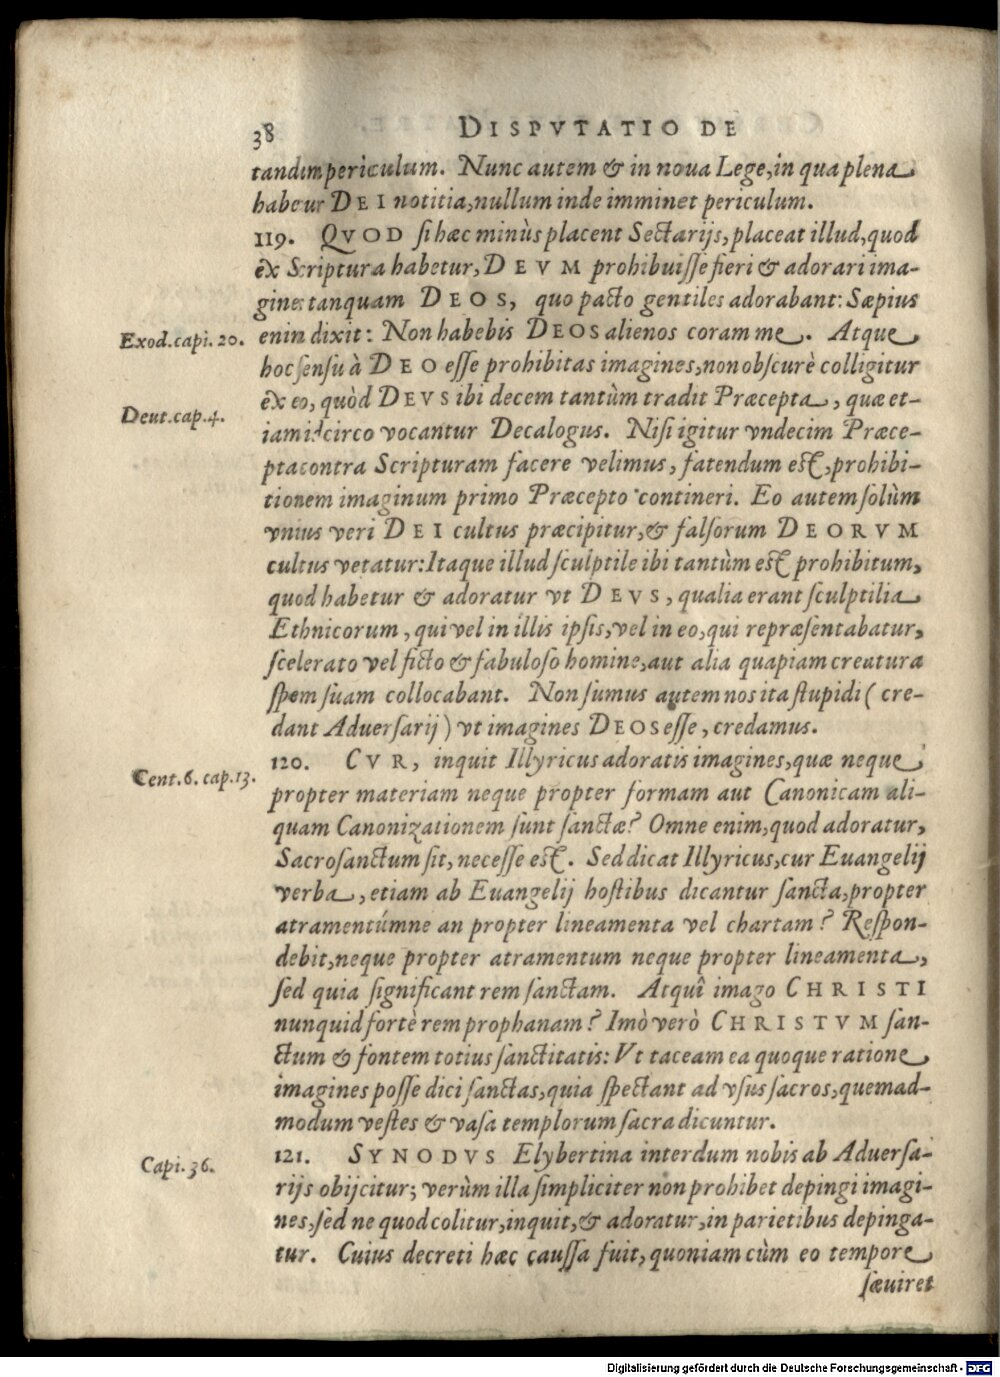 38 DISPVTATIO DE
tandim periculum. Nunc autem & in noua Lege, in qua plena
habeur DEI notitia, nullum inde imminet periculum.
119. QVOD si hæc minùs placent Sectarijs, placeat illud, quod
èx Scriptura habetur, DEVM prohibuisse fieri & adorari ima-
gines tanquam DEOS, quo pacto gentiles adorabant: Sæpius
Exod. capi. 20. enim dixit: Non habebis DEOS alienos coram me. Atque
hoc sensu à DEO esse prohibitas imagines, non obscurè colligitur
èx eo, quòd DEVS ibi decem tantùm tradit Præcepta, quæ et-
Deut. cap. 4.
iam idcirco vocantur Decalogus. Nisi igitur vndecim Præce-
pta contra Scripturam facere velimus, fatendum est, prohibi-
tionem imaginum primo Præcepto contineri. Eo autem solùm
vnius veri DEI cultus præcipitur, & falsorum DEORVM
cultus vetatur: Itaque illud sculptile ibi tantùm est prohibitum,
quod habetur & adoratur vt DEVS, qualia erant sculptilia
Ethnicorum, qui vel in illis ipsis, vel in eo, qui repræsentabatur,
scelerato vel ficto & fabuloso homine, aut alia quapiam creatura
spem suam collocabant. Non sumus autem nos ita stupidi (cre-
dant Aduersarij) vt imagines DEOS esse, credamus.
120. CVR, inquit Illyricus adoratis imagines, quæ neque
Cent. 6. cap. 13.
propter materiam neque propter formam aut Canonicam ali-
quam Canonizationem sunt sanctæ? Omne enim, quod adoratur,
Sacrosanctum sit, necesse est. Sed dicat Illyricus, cur Euangelij
verba, etiam ab Euangelij hostibus dicantur sancta, propter
atramentúmne an propter lineamenta vel chartam? Respon-
debit, neque propter atramentum neque propter lineamenta,
sed quia significant rem sanctam. Atquî imago CHRISTI
nunquid fortè rem prophanam? Imò verò CHRISTVM san-
ctum & fontem totius sanctitatis: Vt taceam ea quoque ratione
imagines posse dici sanctas, quia spectant ad vsus sacros, quemad-
modum vestes & vasa templorum sacra dicuntur.
Capi. 36. 121. SYNODVS Elybertina interdum nobis ab Aduersa-
rijs obijcitur; verùm illa simpliciter non prohibet depingi imagi-
nes, sed ne quod colitur, inquit, & adoratur, in parietibus depinga-
tur. Cuius decreti hæc caussa fuit, quoniam cùm eo tempore
sæuiret
Digitalisierung gefördert durch die Deutsche Forschungsgemeinschaft - DFG